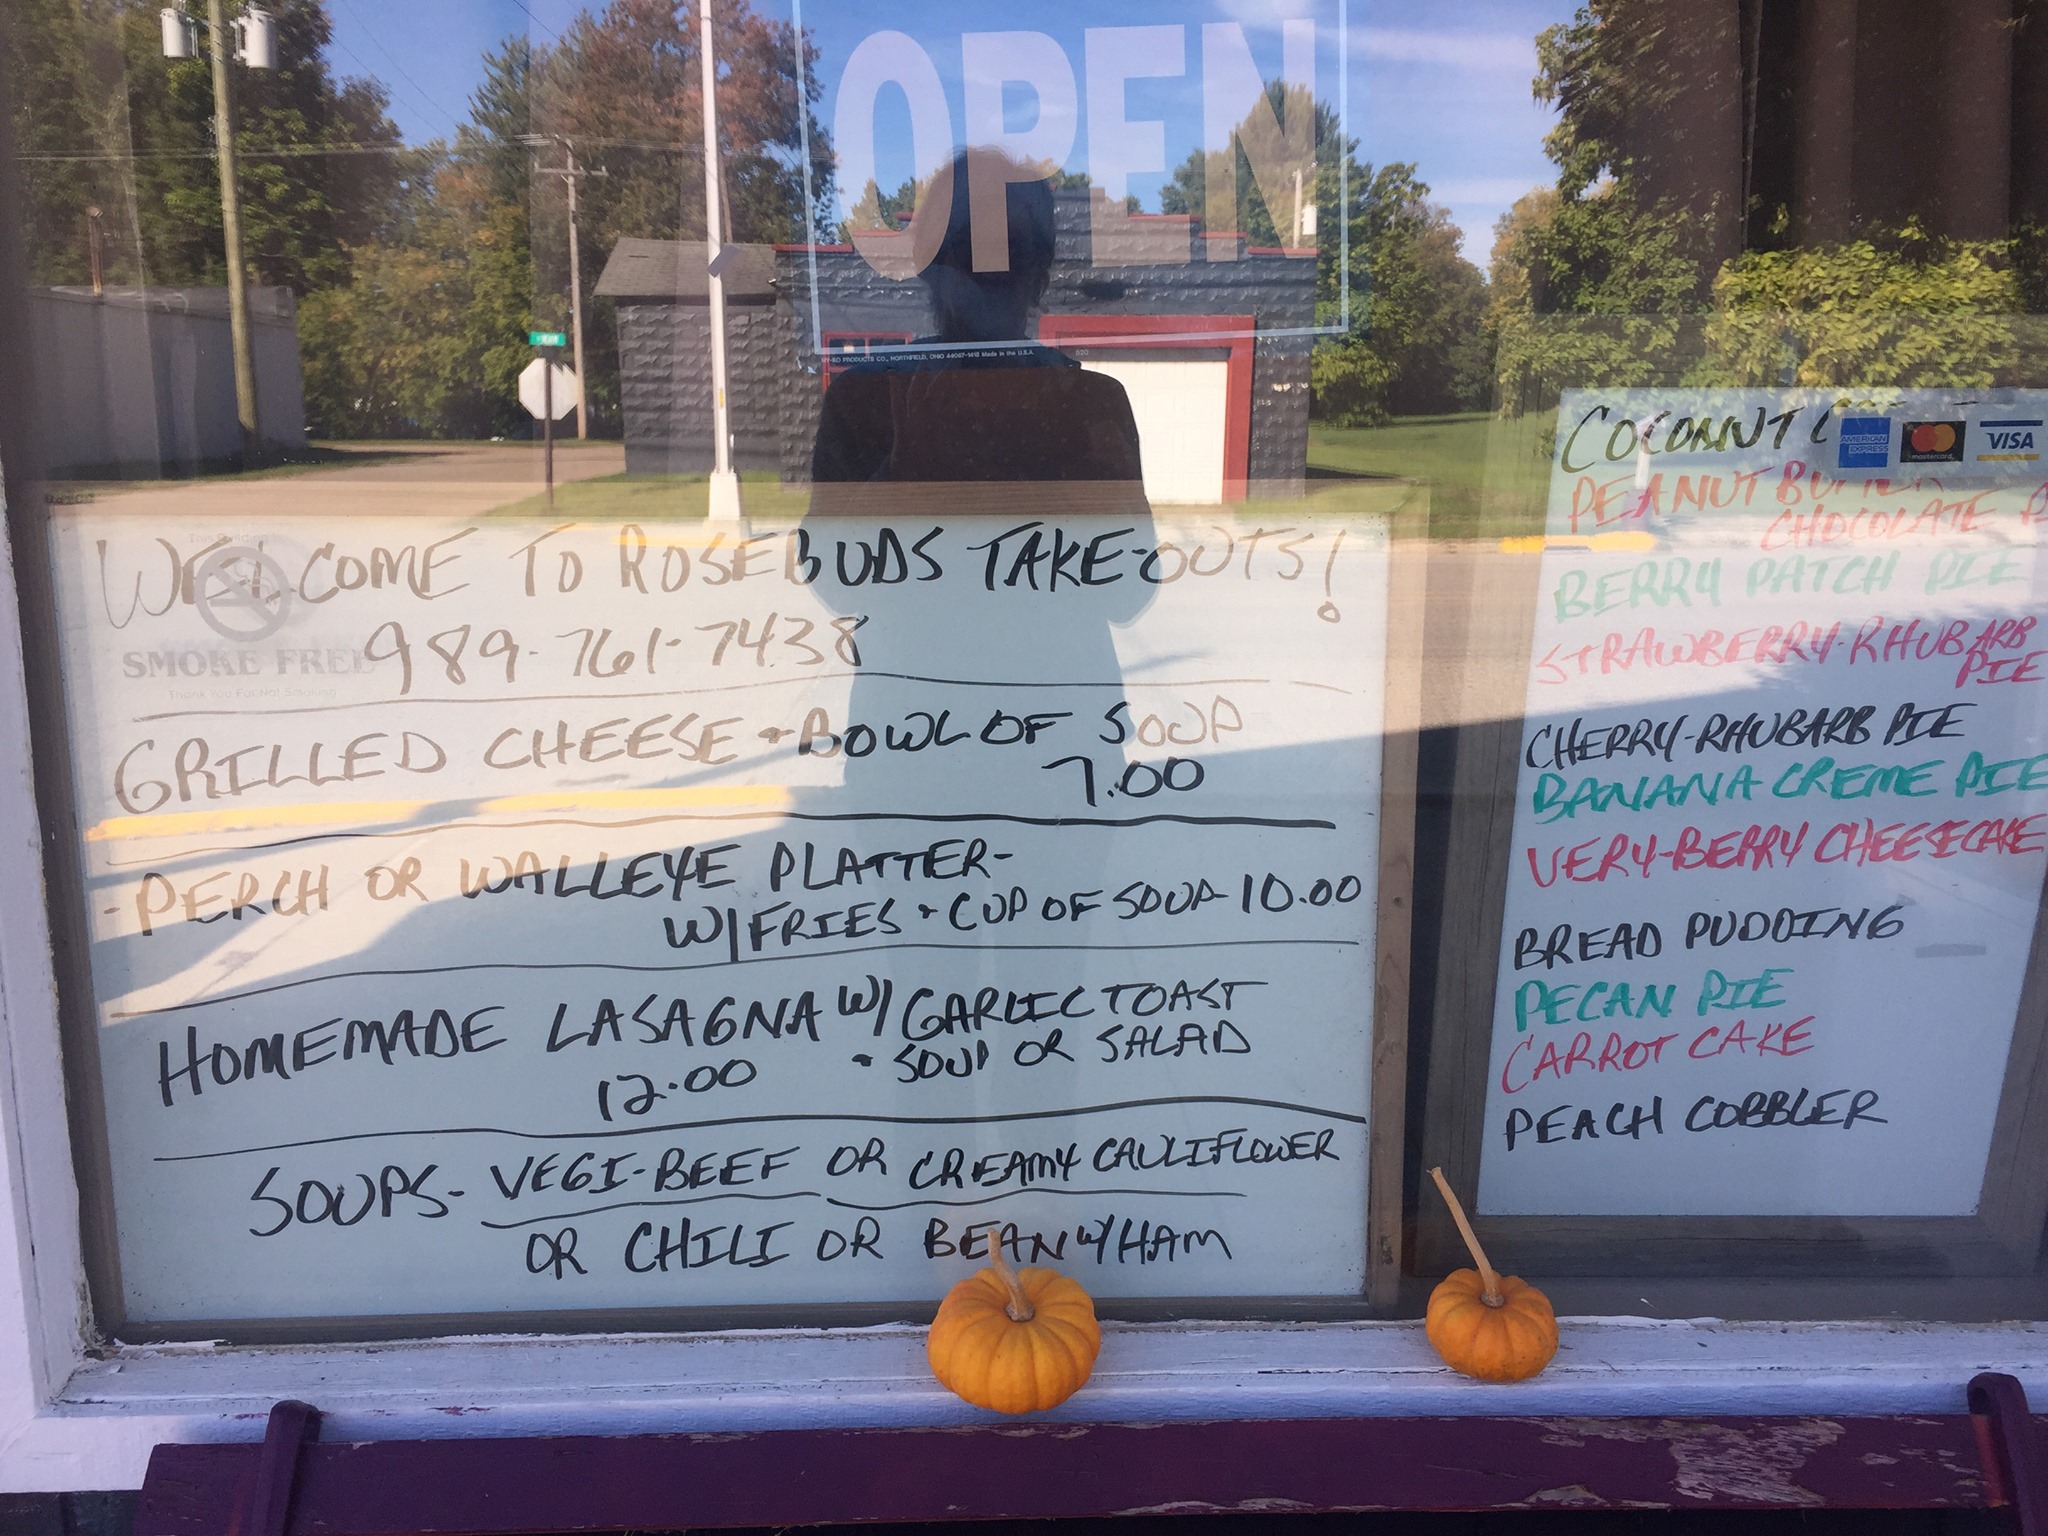 OPEN
CO., NORTHFIELD, OHIO 44067-1418 Made in the U.S.A.
WELCOME TO ROSEBUDS TAKE-OUTS!
989-761-7438
SMOKE FREE
Thank You For Not Smoking
GRILLED CHEESE + BOWL OF SOUP
7.00
- PERCH OR WALLEYE PLATTER-
W/FRIES + CUP OF SOUP - 10.00
HOMEMADE LASAGNA W/ GARLIC TOAST
12.00 + SOUP OR SALAD
SOUPS - VEGI-BEEF OR CREAMY CAULIFLOWER
OR CHILI OR BEAN W/HAM
COCONUT
AMERICAN EXPRESS
mastercard
VISA
PEANUT BUTTER
CHOCOLATE
BERRY PATCH PIE
STRAWBERRY-RHUBARB
PIE
CHERRY-RHUBARB PIE
BANANA CREME PIE
VERY-BERRY CHEESECAKE
BREAD PUDDING
PECAN PIE
CARROT CAKE
PEACH COBBLER